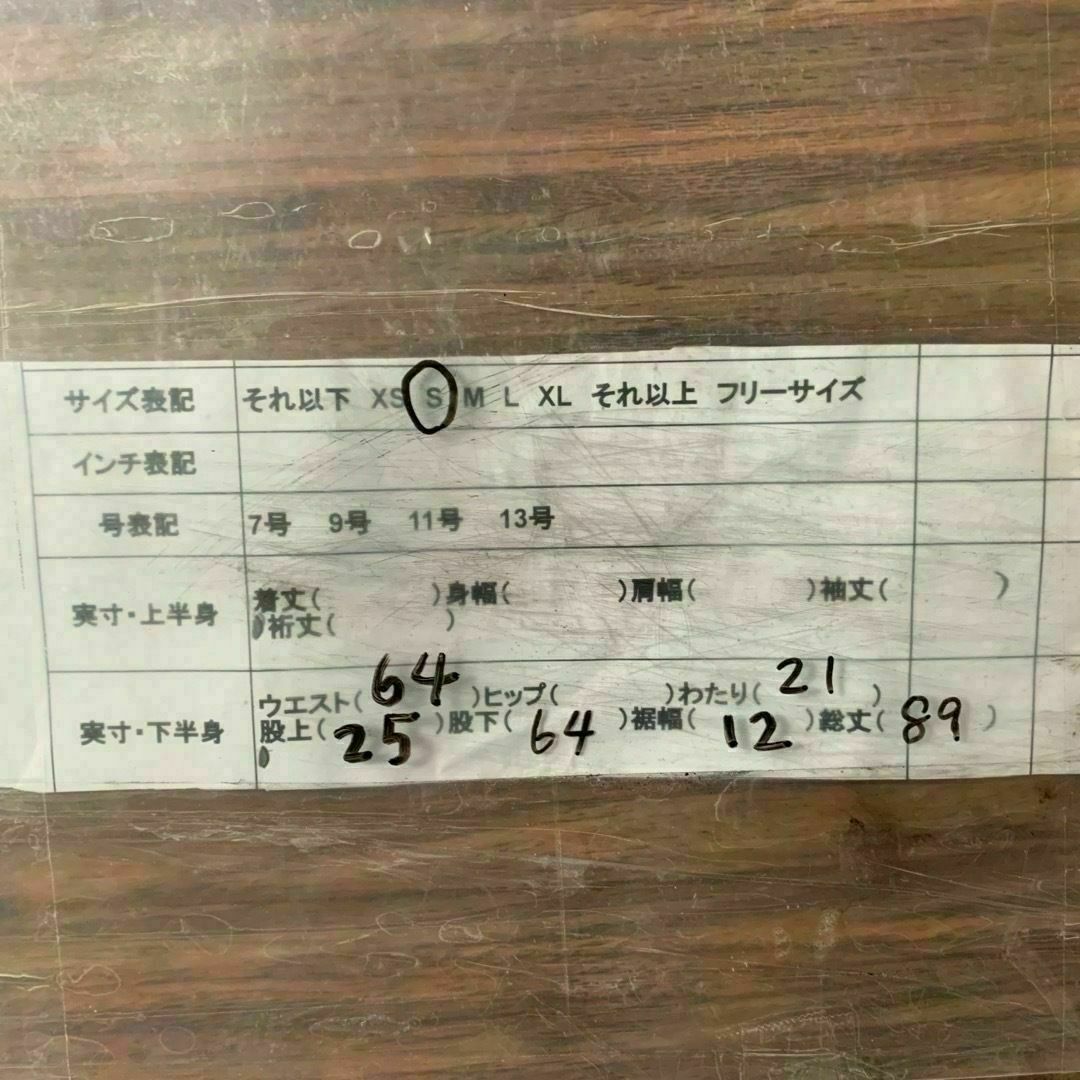 サイズ表記 それ以下 XS S M L XL それ以上 フリーサイズ
インチ表記
号表記 7号 9号 11号 13号
実寸・上半身 着丈( )身幅( )肩幅( )袖丈( )
裄丈( )
実寸・下半身 ウエスト( 64 )ヒップ( )わたり( 21 )
股上( 25 )股下( 64 )裾幅( 12 )総丈( 89 )